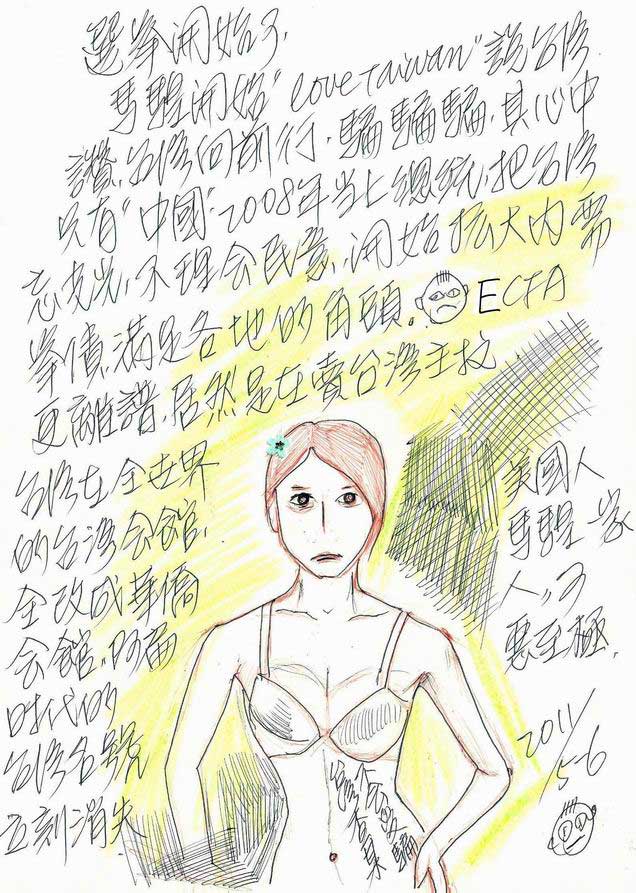 選举開始了,
馬騜開始"love Taiwan"說台灣
讚,台灣向前行,騙騙騙,其心中
只有"中國"2008年当上總統,把台灣
忘光光,不理会民意,開始拡大內需
举債,滿足各地的角頭。ECFA
更離譜,居然是在賣台灣主权
台灣在全世界
的台湾会館,
全改成華僑
会館,阿扁
时代的
台灣名號
立刻消失
美國人
馬騜一家
人,可
惡至極,
2011/
5-6
騙